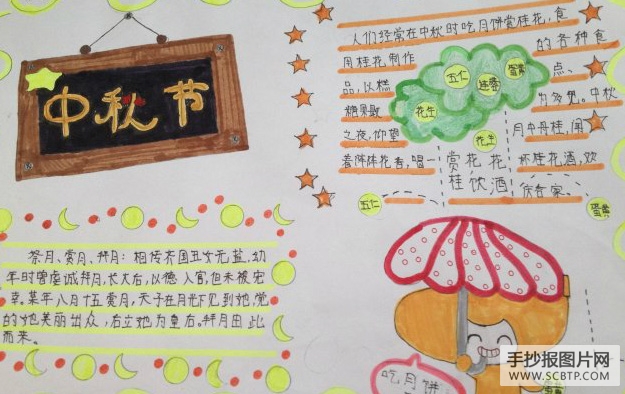 中秋节
人们经常在中秋时吃月饼赏桂花,食
用桂花制作 的各种食
品,以糕 点、
糖果最 为多见。中秋
之夜,仰望 月中丹桂,闻
着阵阵花香,喝一 杯桂花酒,欢
庆合家
五仁 莲蓉 蛋黄
花生
花生
赏花花
桂饮酒
五仁
蛋黄
祭月、赏月、拜月:相传齐国丑女无盐,幼
年时曾虔诚拜月,长大后,以德入宫,但未被宠
幸。某年八月十五赏月,天子在月光下见到她,觉
的她美丽出众,后立她为皇后。拜月由此
而来。
吃月饼
手抄报图片网
WWW.SCBTP.COM